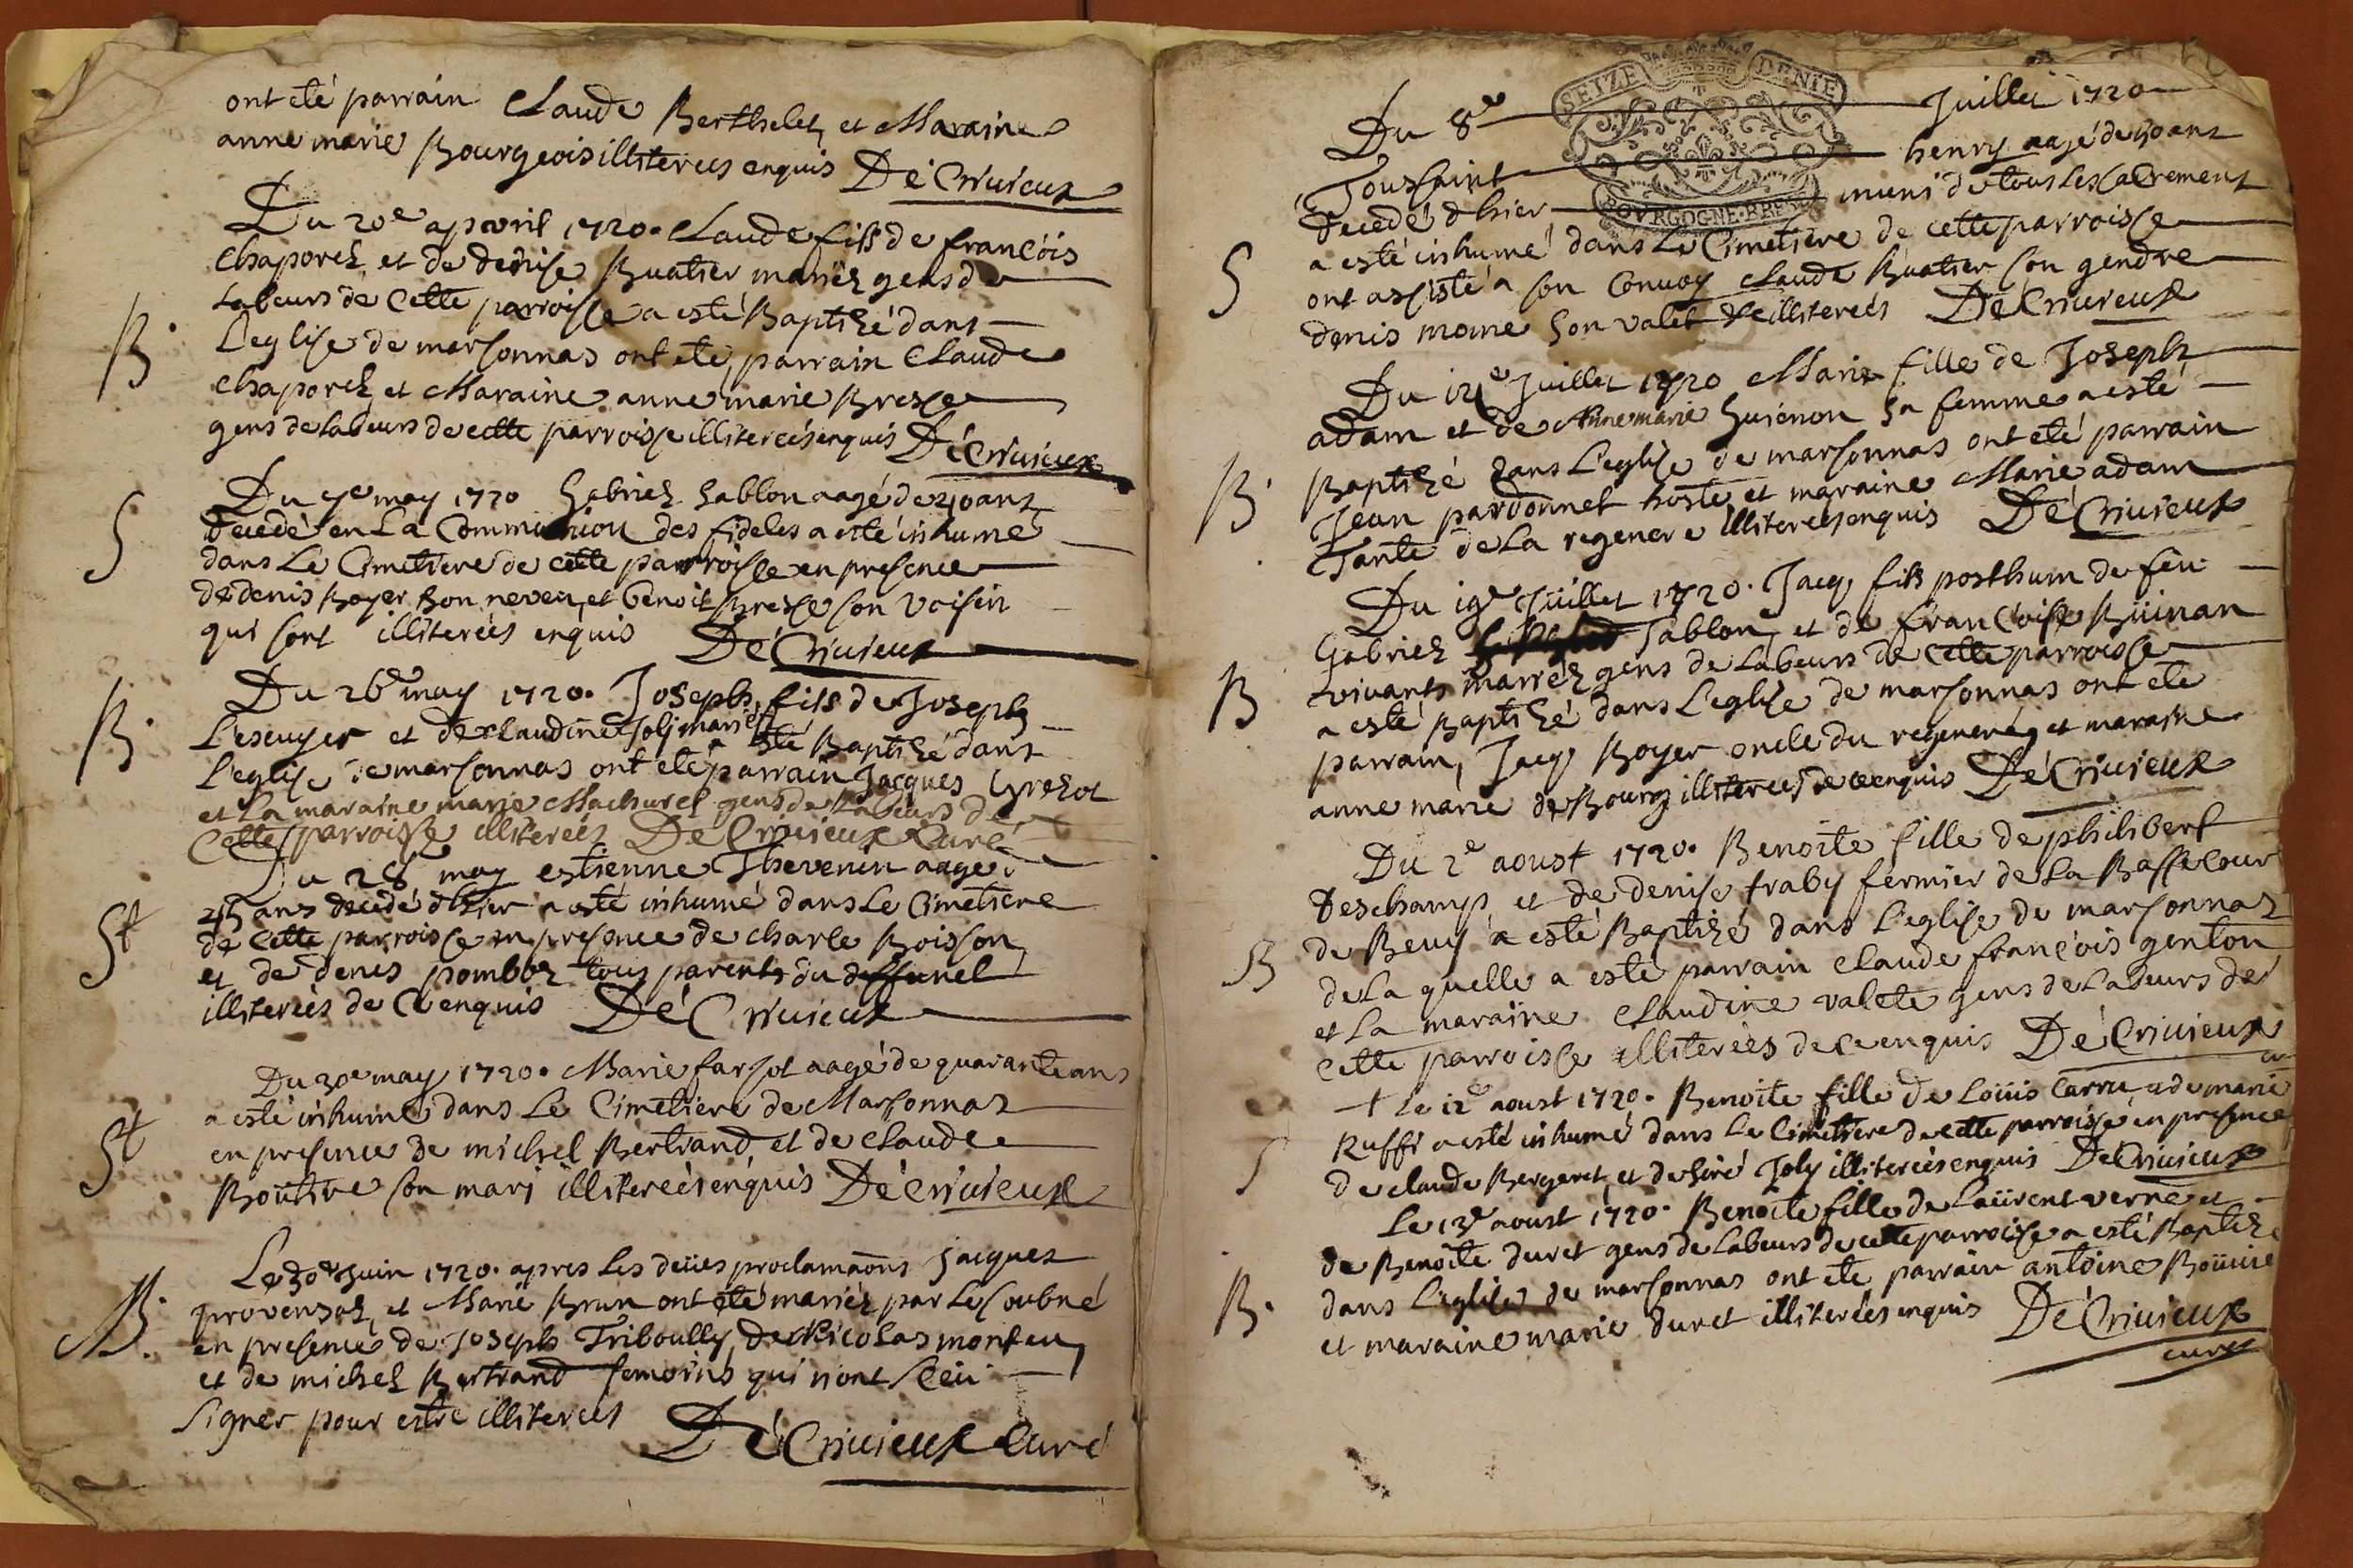 ont eté parrain Claude Berthelet, et Maraine
anne marie Bourgeois illiterées enquis DéCriuieux
Du 20e apvril 1720. Claude fils de françois
Chaporel et de denise Buatier mariéz gens de
Labeurs de Cette parroisse a esté Baptizé dans
B. L'eglise de marsonnas ont eté parrain Claude
Chaporel et Maraine anne marie Bresse
gens de Labeurs de cette parroisse illiterées enquis DéCriuieux
Du may 1720 Gabriel Sablon aagé de ans
S decedé en La Communion des fideles a esté inhumé
dans Le Cimetiere de cette parroisse en presence
de denis Boyer Son neveu, et benoit Bresse son voisin
qui sont illiterées enquis DéCriuieux
Du 26e may 1720. Joseph, fils de Joseph
B. L'escuyer et de claudine Joly mariés
a esté Baptizé dans
L'eglise de marsonnas ont eté parrain Jacques Grezot
et La maraine marie Machurel gens de Labeurs de
Cette parroisse illiterées DéCriuieux Curé
Du 28e may estienne Thevenin aagé
ans decedé d'hier a esté inhumé dans Le Cimetiere
St de Cette parroisse en presence de charle Boisson
et de denis tous parents du deffunct
illiterées de Ce enquis DéCriuieux
Du 30e may 1720. Marie farsot aagé de quarante ans
a esté inhumé dans Le Cimetiere de Marsonnaz
St en presence de michel Bertrand, et de Claude
son mary illiterées enquis DéCriuieux
Le 30e Juin 1720. apres Les deües proclamaõns Jacques
M. provenzal, et Marie Brun ont eté mariéz par Le Soubné
en presence de Joseph Triboully, de Nicolas monteu,
et de michel Bertrand temoins qui n'ont sceü
Signer pour estre illiterées
DéCriuieux Curé
SEIZE DENIE
BOVRGOGNE BRESS
Du 8e Juillet 1720
Toussaint henry aagé de ans
decedé d'hier muni de tous Les sacrements
S a esté inhumé dans Le Cimetiere de cette parroisse
ont assisté a son Convoy Claude Buatier son gendre
denis moine Son valet illiterées DéCriuieux
Du Juillet 1720 Marie fille de Joseph
adam et de Anne marie Guienon sa femme a esté
B. Baptizé dans L'eglise de marsonnas ont eté parrain
Jean pardonnet hoste, et maraine Marie adam
Tante de La regeneré illiterées enquis DéCriuieux
Du 19e Juillet 1720. Jacq fils posthum de feu
Gabriel Sablon, et de françoise
B vivants mariéz gens de Labeurs de Cette parroisse
a esté Baptizé dans L'eglise de marsonnas ont eté
parrain, Jacq Boyer oncle du regeneré, et maraine
anne marie de Bourg illiterées de ce enquis DéCriuieux
Du 2e aoust 1720. Benoite fille de philibert
Deschamp et de denise fraby fermier de La Basse Cour
B de Bevy a esté Baptizé dans L'eglise de marsonnaz
de La quelle a esté parrain claude françois genton
et La maraine Claudine valete gens de Labeurs de
Cette parroisse illiterées de ce enquis DéCriuieux
+ Le 12e aoust 1720. Benoite fille de Loüis Carru et de marie
S Ruffi a esté inhumé dans Le Cimetiere de cette parroisse en presence
de claude Bergeret, et de Joly illiterées enquis DéCriuieux
Le 13e aoust 1720. Benoite fille de Laürent verne et
de Benoite duret gens de Labeurs de cette parroisse a esté Baptizé
B. dans L'eglise de marsonnas ont eté parrain antoine
et maraine marie duret illiterées enquis DéCriuieux
curé